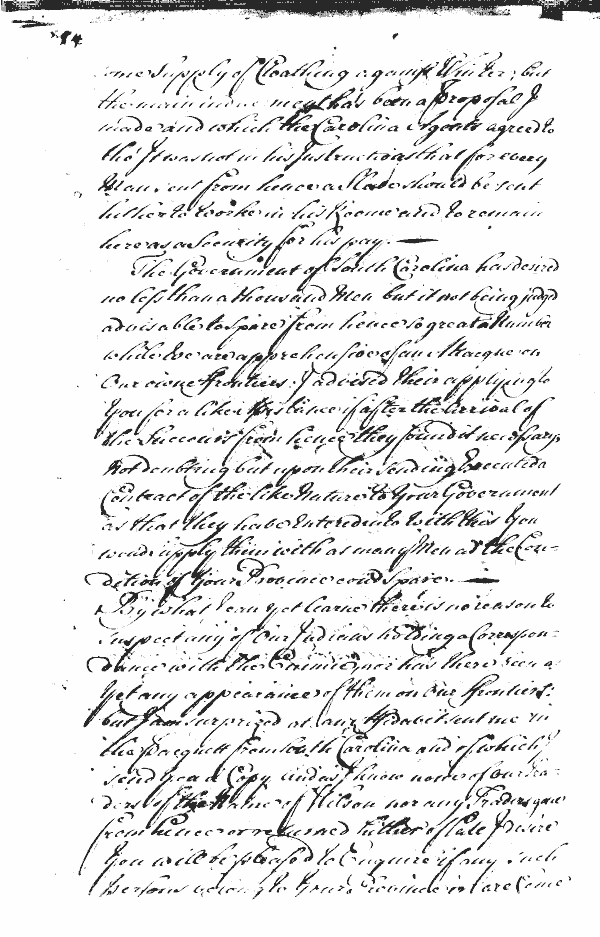 some Supply of Cloathing against Winter; but
the main inducement has been a Proposal I
made and which the Carolina Agents agreed to
tho' It was not in his Instructions that for every
Man sent from hence a Slave should be sent
hither to worke in his Roome and to remain
here as a Security for his pay. —
The Government of South Carolina has desired
no less than a thousand Men but it not being judged
advisable to spare from hence so great a Number
while We are apprehensive of an Attacque on
Our owne Frontiers. I advised their applying to
You for a like Assistance if after the arrival of
the Succours from hence they found it necessary,
Not doubting but upon their sending & executing a
Contract of the like Nature to Your Government
as that they have Entered into With this You
would supply them with as many Men as the Con-
dition of Your Province could spare. —
By what I can yet learne there is no reason to
suspect any of Our Indians holding a Correspon-
dance with the Enimie, nor has there been as
Yet any appearance of them on Our Frontiers:
but I am surprized at an Affidavit sent me in
the Pacquett from South Carolina and of which I
send You a Copy, and as I know none of our Tra-
ders of the Name of Wilson nor any Traders gone
from hence or returned hither of late I desire
You will be pleased to Enquire if any such
Persons belong to Your Province or are Come